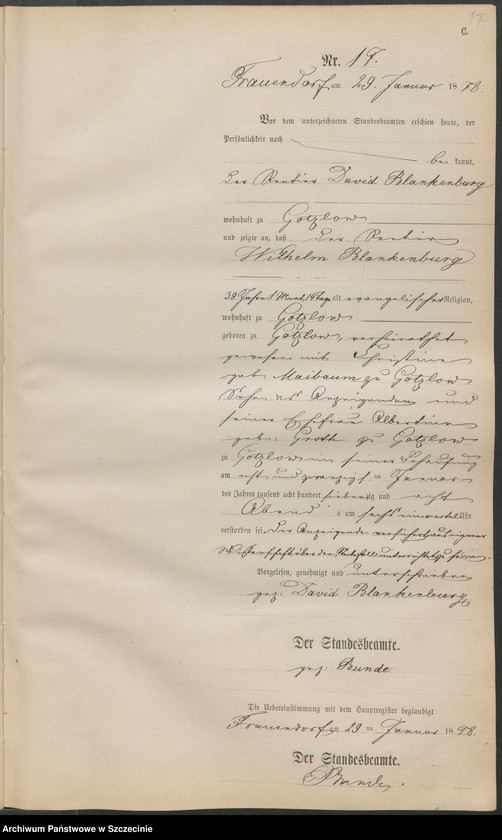 17
C.
Nr. 17.
Frauendorf am 29. Januar 1878.
Vor dem unterzeichneten Standesbeamten erschien heute, der
Persönlichkeit nach
bekannt,
der Rentier David Blankenburg
wohnhaft zu Gotzlow
und zeigte an, daß der Rentier
Wilhelm Blankenburg
39 Jahre 1 Monat 14 Tage alt evangelischer Religion,
wohnhaft zu Gotzlow
geboren zu Gotzlow, verheirathet
gewesen mit Christine
geb. Maibaum zu Gotzlow
Sohn des Anzeigenden und
seiner Ehefrau Albertine
geb. Groth zu Gotzlow
zu Gotzlow in seiner Behausung
am acht und zwanzigsten Januar
des Jahres tausend acht hundert siebenzig und acht
Abends um sechs einviertel Uhr
verstorben sei. Der Anzeigende versichert aus eigener
Wissenschaft über den Sterbefall unterrichtet zu sein.
Vorgelesen, genehmigt und unterschrieben
gez: David Blankenburg
Der Standesbeamte.
gez: Bunde
Die Uebereinstimmung mit dem Hauptregister beglaubigt
Frauendorf am 29 ten Januar 1878.
Der Standesbeamte.
Bunde.
Archiwum Państwowe w Szczecinie